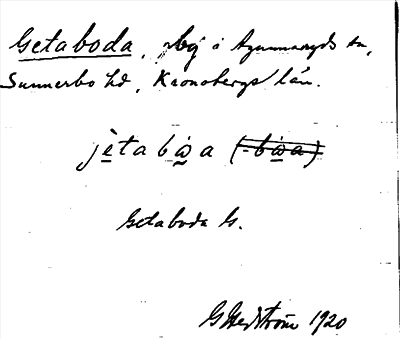 Getaboda, by i Agunnaryds sn,
Sunnerbo hd, Kronobergs län.
jètabω̣a (-bω̣a)
Getaboda G.
G Hedström 1920